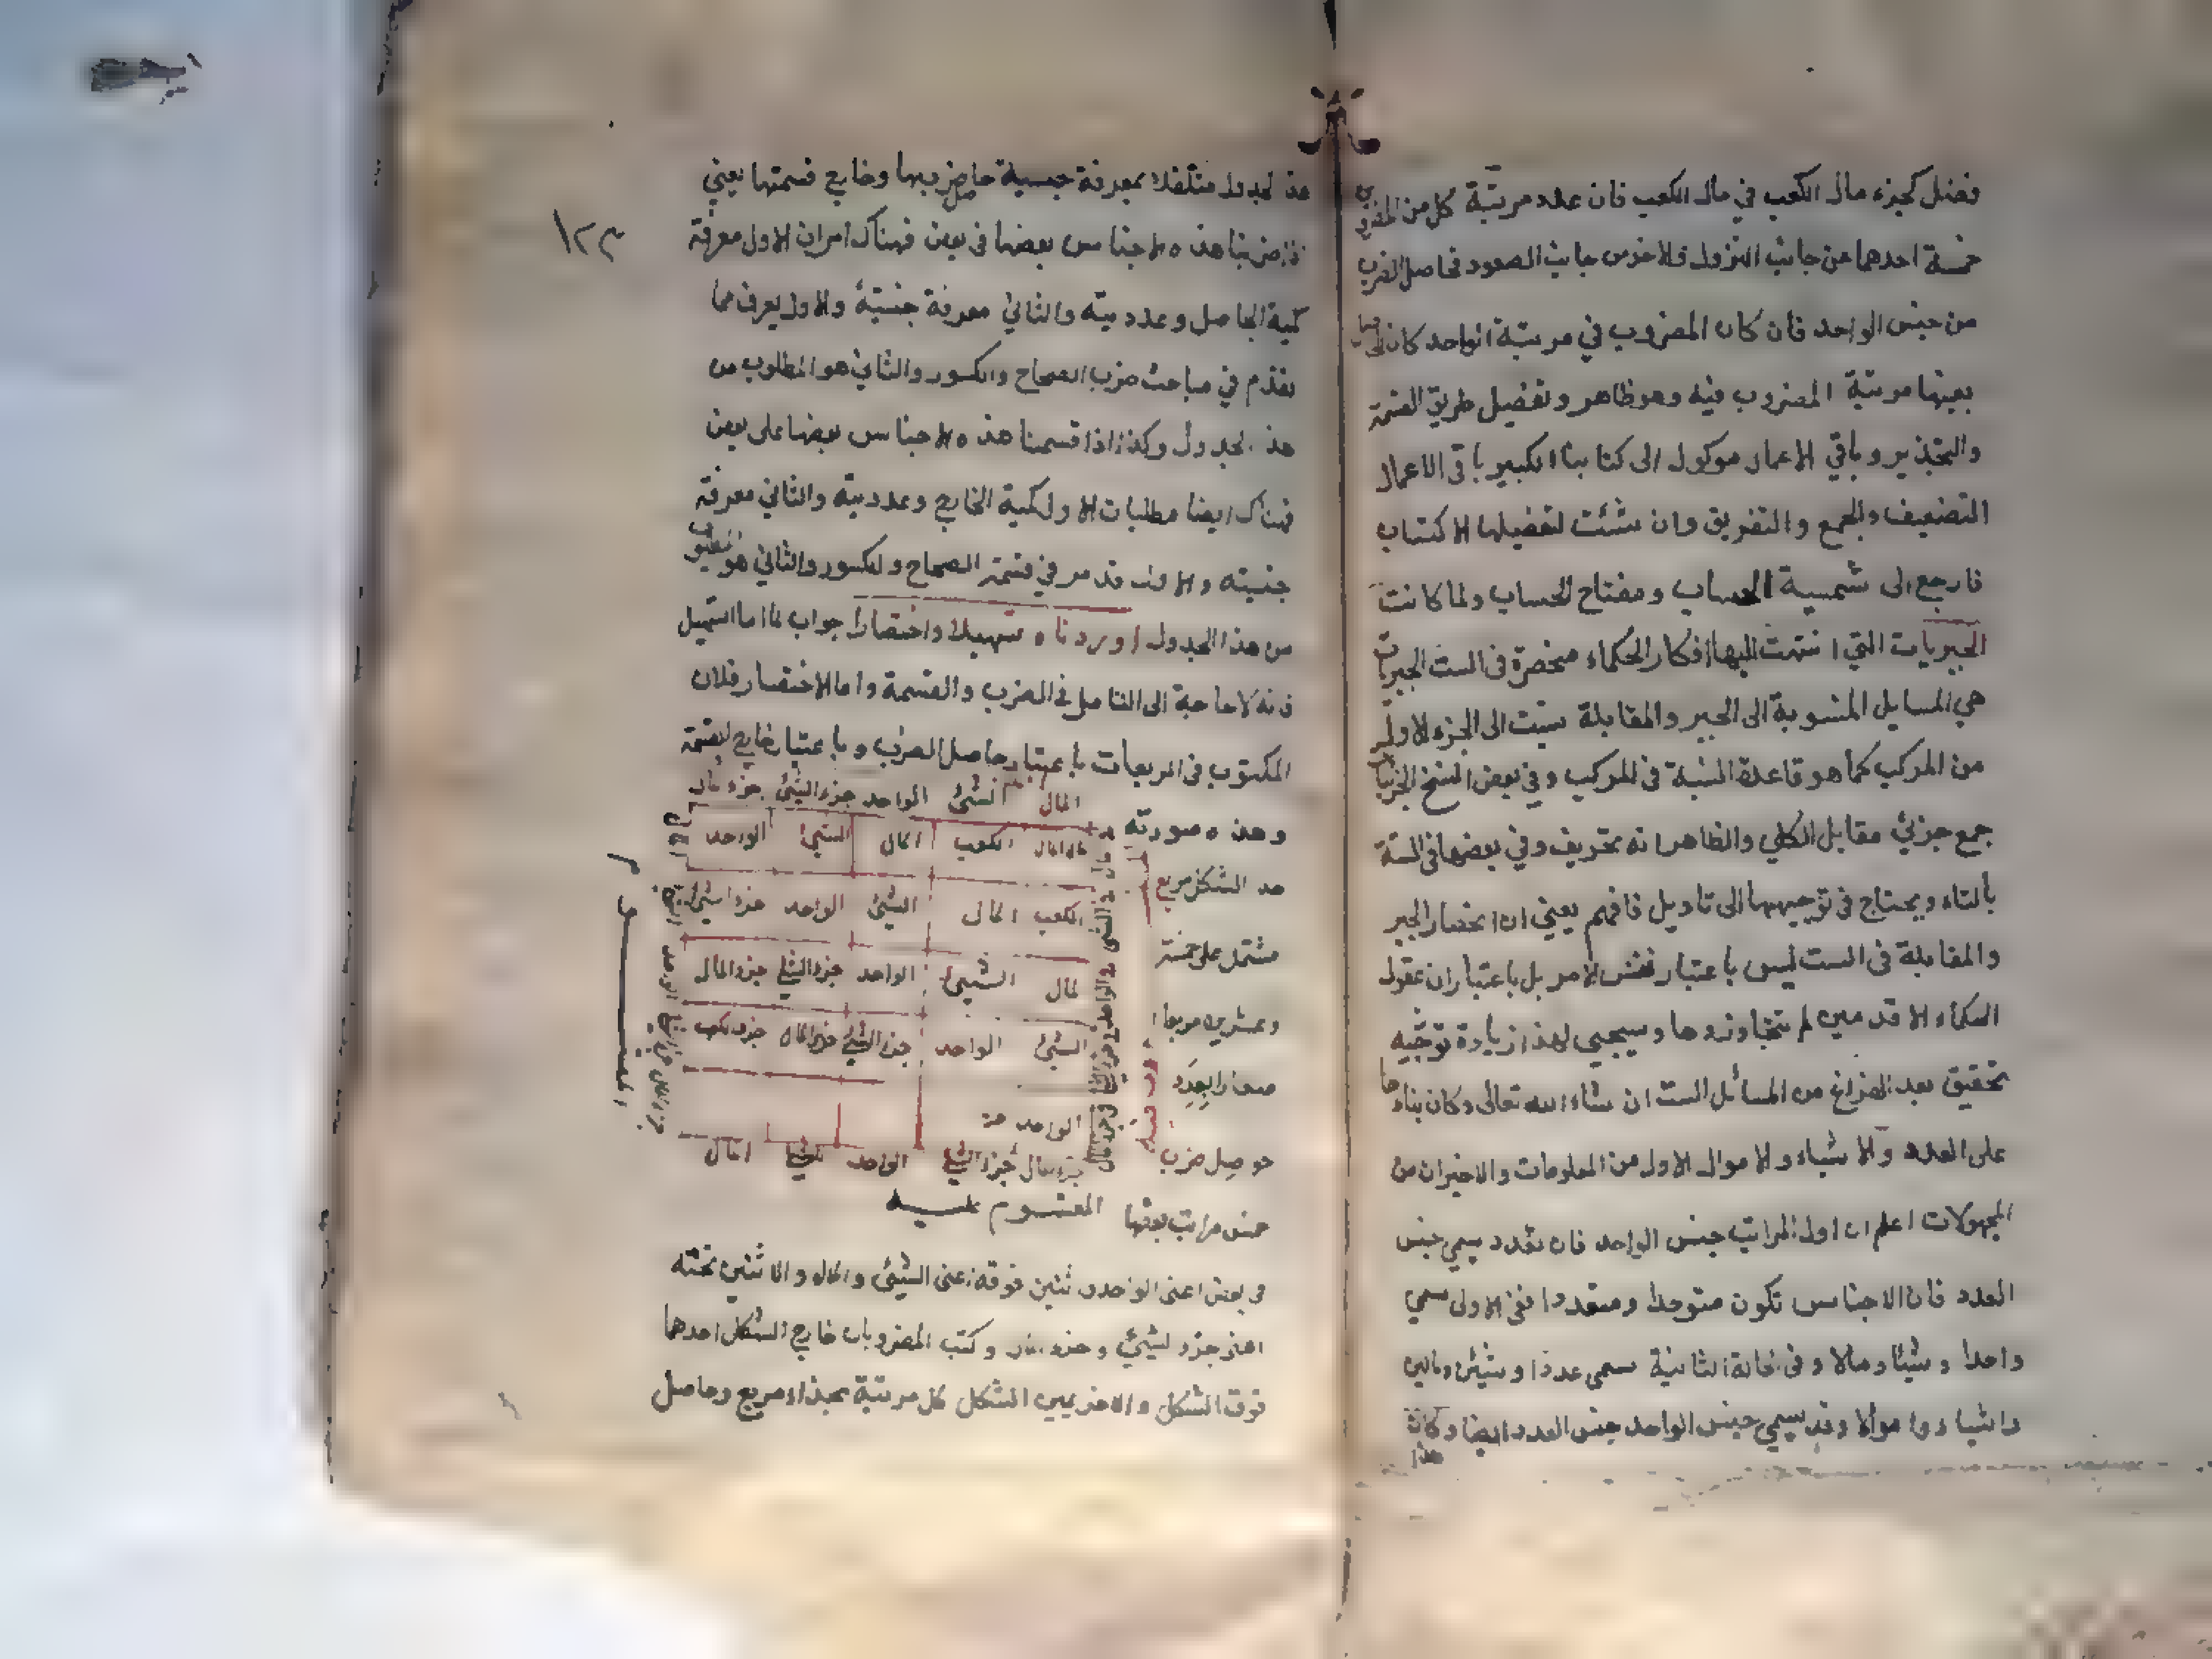 فضل كجزء مال الكعب في مال الكعب فان عدد مرتبة كل من المضروبين
خمسة احدهما من جانب النزول والاخر من جانب الصعود فحاصل الضرب
من جنس الواحد فان كان المضروب في مرتبة الواحد كان الحاصل
بعينها مرتبة المضروب فيه وهو ظاهر وتفصيل طريق القسمة
والتجذير وباقي الاعمال موكول الى كتابنا الكبير باقي الاعمال
التضعيف والجمع والتفريق وان شئت تفصيلها الاكتساب
فارجع الى شمسية الحساب ومفتاح الحساب ولما كانت
الجبريات التي انتهت اليها افكار الحكماء منحصرة في الست الجبريات
هي المسايل المنسوبة الى الجبر والمقابلة نسبت الى الجزء الاول
من المركب كما هو قاعدة النسبة في المركب وفي بعض النسخ الخبريات
جمع جزئي مقابل الكلي والظاهر انه تحريف وفي بعضها في الستة
بالتاء ويحتاج في توجيهها الى تاويل فافهم يعني ان انحصار الجبر
والمقابلة في الست ليس باعتبار نفس الامر بل باعتبار ان عقول
الحكماء الاقدمين لم يتجاوزوها وسيجيي لهذا زيادة توجيه
تحقيق بعد الفراغ من المسائل الست ان شاء الله تعالى وكان بناءها
على العدد والاشياء والاموال الاول من المعلومات والاخيران من
المجهولات اعلم ان اول المراتب جنس الواحد فان تعدد يسمي جنس
العدد فان الاجناس تكون متوحدا ومتعددا ففي الاولى يسمي
واحدا وشيئا ومالا وفي الحالة الثانية يسمي عددا وشيئين ومالين
واشياء واموالا وقد يسمي جنس الواحد جنس العدد ايضا وكان
هذا
١٢٣
هذا الجدول متكفلا بمعرفة جنسية حاصل ضربها وخارج قسمتها يعني
اذا ضربنا هذه الاجناس بعضها في بعض فهناك امران الاول معرفة
كمية الحاصل وعدديته والثاني معرفة جنسيته والاول يعرف مما
تقدم في مباحث ضرب الصحاح والكسور والثاني هو المطلوب من
هذا الجدول وكذا اذا قسمنا هذه الاجناس بعضها على بعض
فهناك ايضا مطلبان الاول كمية الخارج وعدديته والثاني معرفة
جنسيته والاول قد مر في قسمة الصحاح والكسور والثاني هو المطلوب
من هذا الجدول اوردناه تسهيلا واختصارا جواب لما اما التسهيل
فانه لا حاجة الى التامل في الضرب والقسمة واما الاختصار فلان
المكتوب في المربعات باعتبار حاصل الضرب وباعتبار خارج القسمة
وهذه صورته
المال الشئ الواحد جزء الشئ جزء مال
مال المال الكعب المال الشئ الواحد
الكعب المال الشئ الواحد جزء الشئ
المال الشئ الواحد جزء الشئ جزء المال
الشئ الواحد جزء الشئ جزء المال جزء الكعب
الواحد
جزء مال جزء الشئ الواحد الشئ المال
المقسوم عليه
المقسوم
هذا الشكل مربع
مشتمل على خمسة
وعشرين مربعا
صغارا بعدد
حواصل ضرب
خمس مراتب بعضها
في بعض اعني الواحد واثنين فوقه اعني الشئ والمال والاثنين تحته
اعني جزء الشئ وجزء المال وكتب المضروبان خارج الشكل احدهما
فوق الشكل والاخر يمين الشكل كل مرتبة بحذاء مربع وحاصل